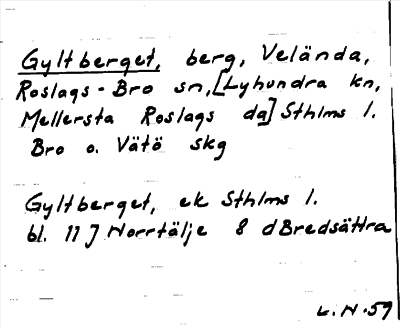 Gyltberget, berg, Velända,
Roslags-Bro sn, [Lyhundra kn,
Mellersta Roslags da] Sthlms l.
Bro o. Vätö skg
Gyltberget, ek Sthlms l.
bl. 11 J Norrtälje 8 d Bredsättra
L. H. 59